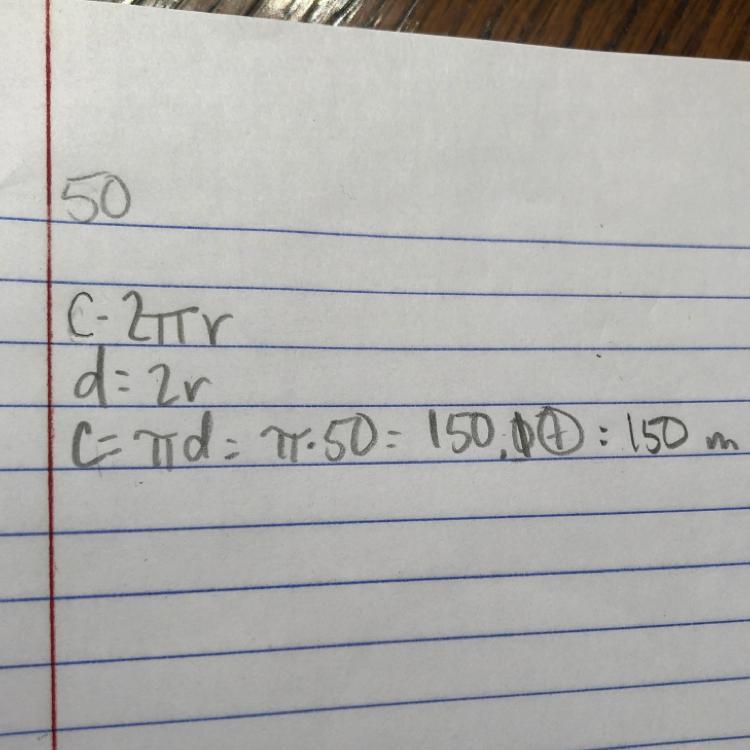 50
C - 2πr
d = 2r
C = πd = π·50 = 150. = 150 m